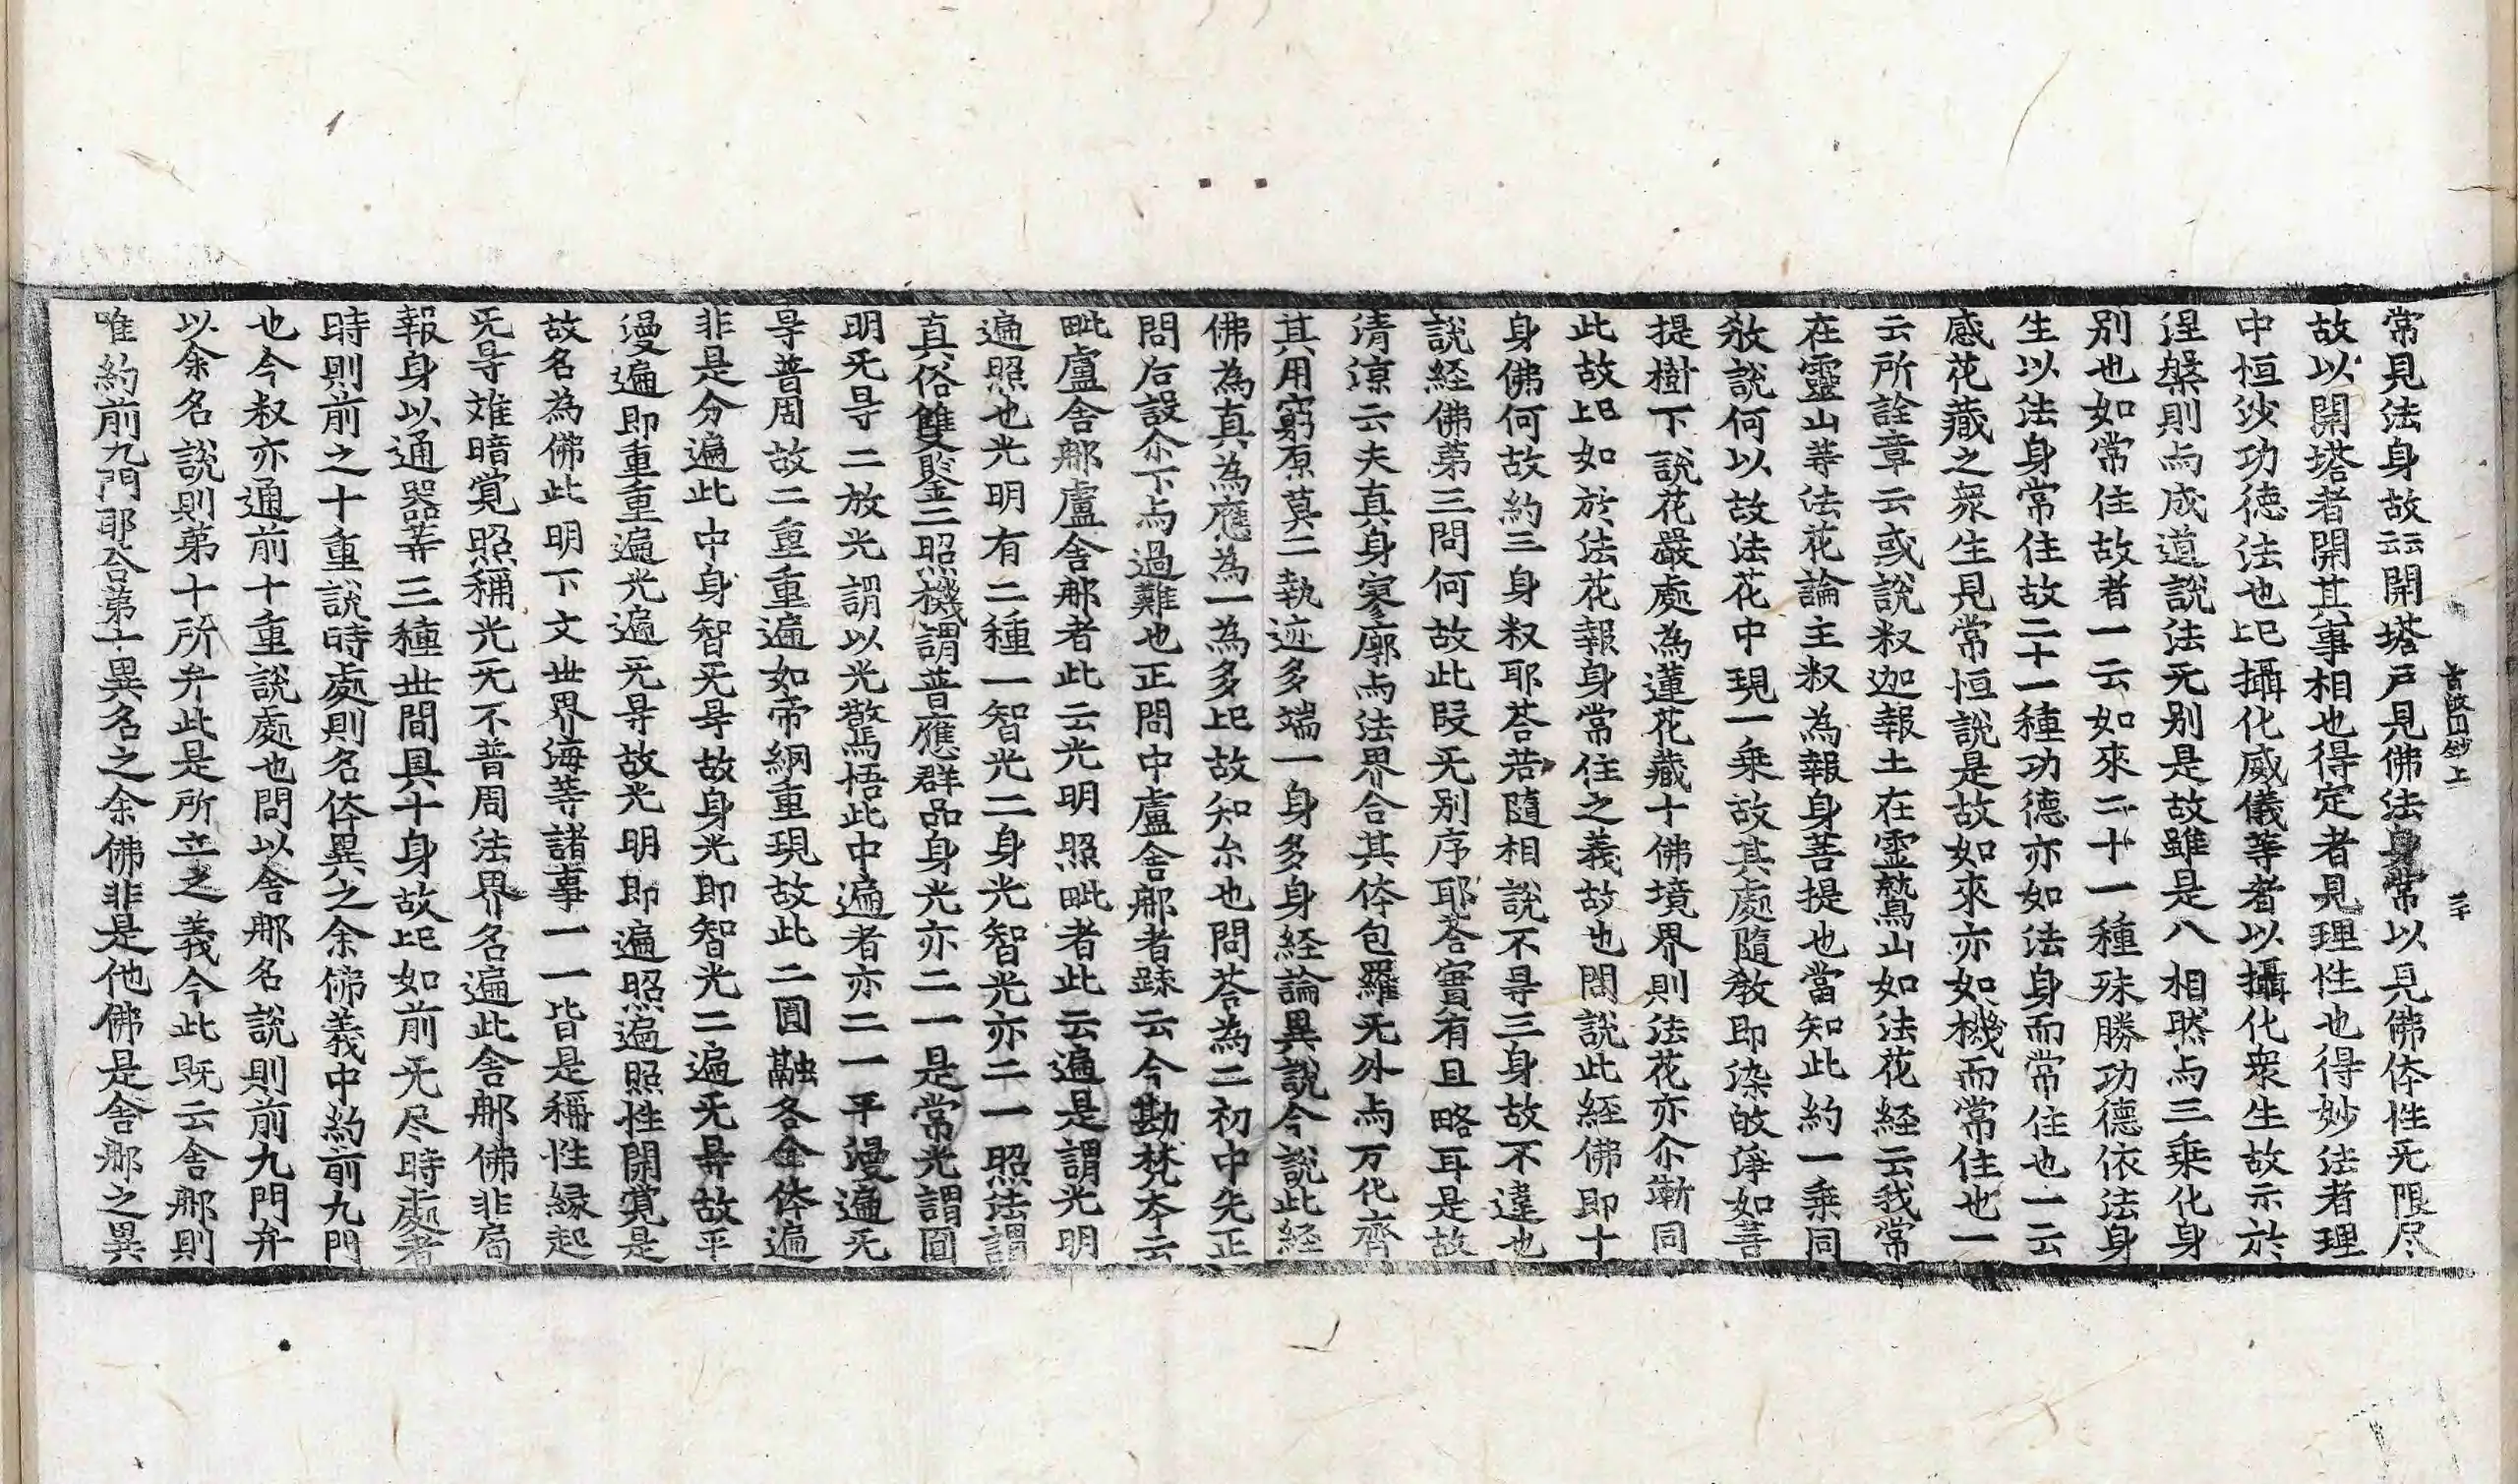 常見法身故云云開塔戶見佛法身常以見佛体性无限尽
故以開塔者開其事相也得定者見理性也得妙法者理
中恒沙功德法也㠯攝化威儀等者以攝化衆生故示於
涅槃則与成道說法无别是故雖是八相㬱与三乘化身
别也如常住故者一云如來二十一種殊勝功德依法身
生以法身常住故二十一種功德亦如法身而常住也一云
感花藏之衆生見常恒說是故如來亦如機而常住也一
云所詮章云或說釈迦報土在霊鷲山如法花経云我常
在靈山等法花論主釈為報身菩提也當知此約一乘同
敎說何以故法花中現一乘故其處隨敎即染故淨如菩
提樹下說花嚴處為蓮花藏十佛境界則法花亦尒漸同
此故㠯如於法花報身常住之義故也問說此経佛即十
身佛何故約三身釈耶荅若隨相說不㝵三身故不違也
說経佛第三問何故此段无别序耶荅實有且略耳是故
清凉云夫真身寥廓与法界合其体包羅无外与万化齊
其用窮原莫二執迹多端一身多身経論異說今說此経
佛為真為應為一為多㠯故知尒也問荅為二初中先正
問后設尒下与過難也正問中盧舍那者䟽云今勘梵夲云
毗盧舍那盧舍那者此云光明照毗者此云遍是謂光明
遍照也光明有二種一智光二身光智光亦二一照法謂
真俗雙鑒二照機謂普應群品身光亦二一是常光謂圓
明无㝵二放光謂以光驚悟此中遍者亦二一平漫遍无
㝵普周故二重重遍如帝網重現故此二圓融各全体遍
非是分遍此中身智无㝵故身光即智光二遍无㝵故平
漫遍即重重遍光遍无㝵故光明即遍照遍照性開覺是
故名為佛此明下文世界海等諸事一一皆是稱性緣起
无㝵雖暗覚照稱光无不普周法界名遍此舍那佛非局
報身以通器等三種世間具十身故㠯如前无尽時處者
時則前之十重說時處則名体異之余佛義中約前九門
也今釈亦通前十重說處也問以舍那名說則前九門弁
以余名說則第十所弁此是所立之義今此既云舍那則
唯約前九門耶荅第十異名之余佛非是他佛是舍那之異